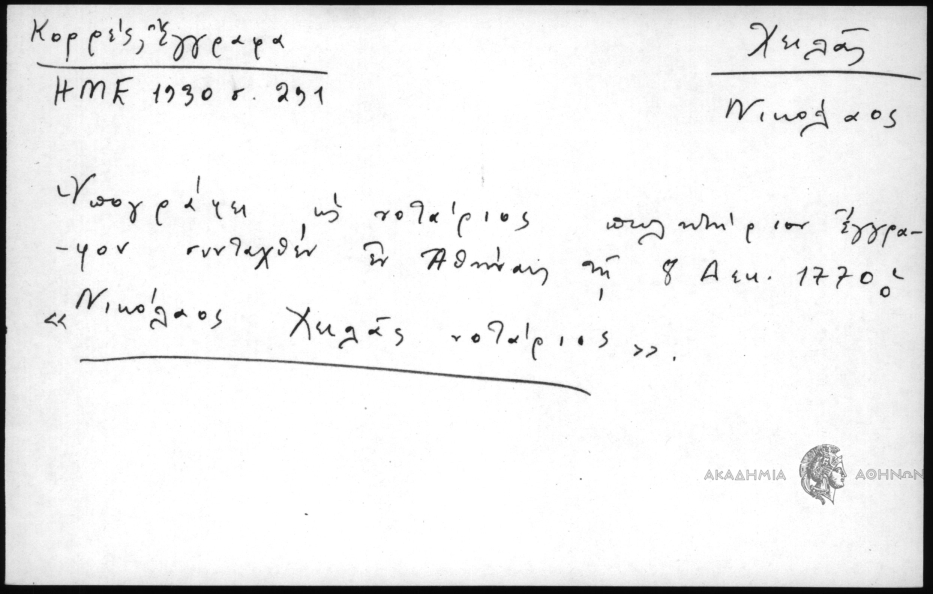 Κορρές, Ἔγγραφα
ΗΜΕ 1930 σ. 291
Χειλᾶς
Νικόλαος
Ὑπογράφει ὡς νοτάριος πωλητήριον ἔγγρα-
-φον συνταχθέν ἐν Ἀθήναις τῇ 8 Δεκ. 1770:
« Νικόλαος Χειλᾶς νοτάριος ».
ΑΚΑΔΗΜΙΑ ΑΘΗΝΩΝ